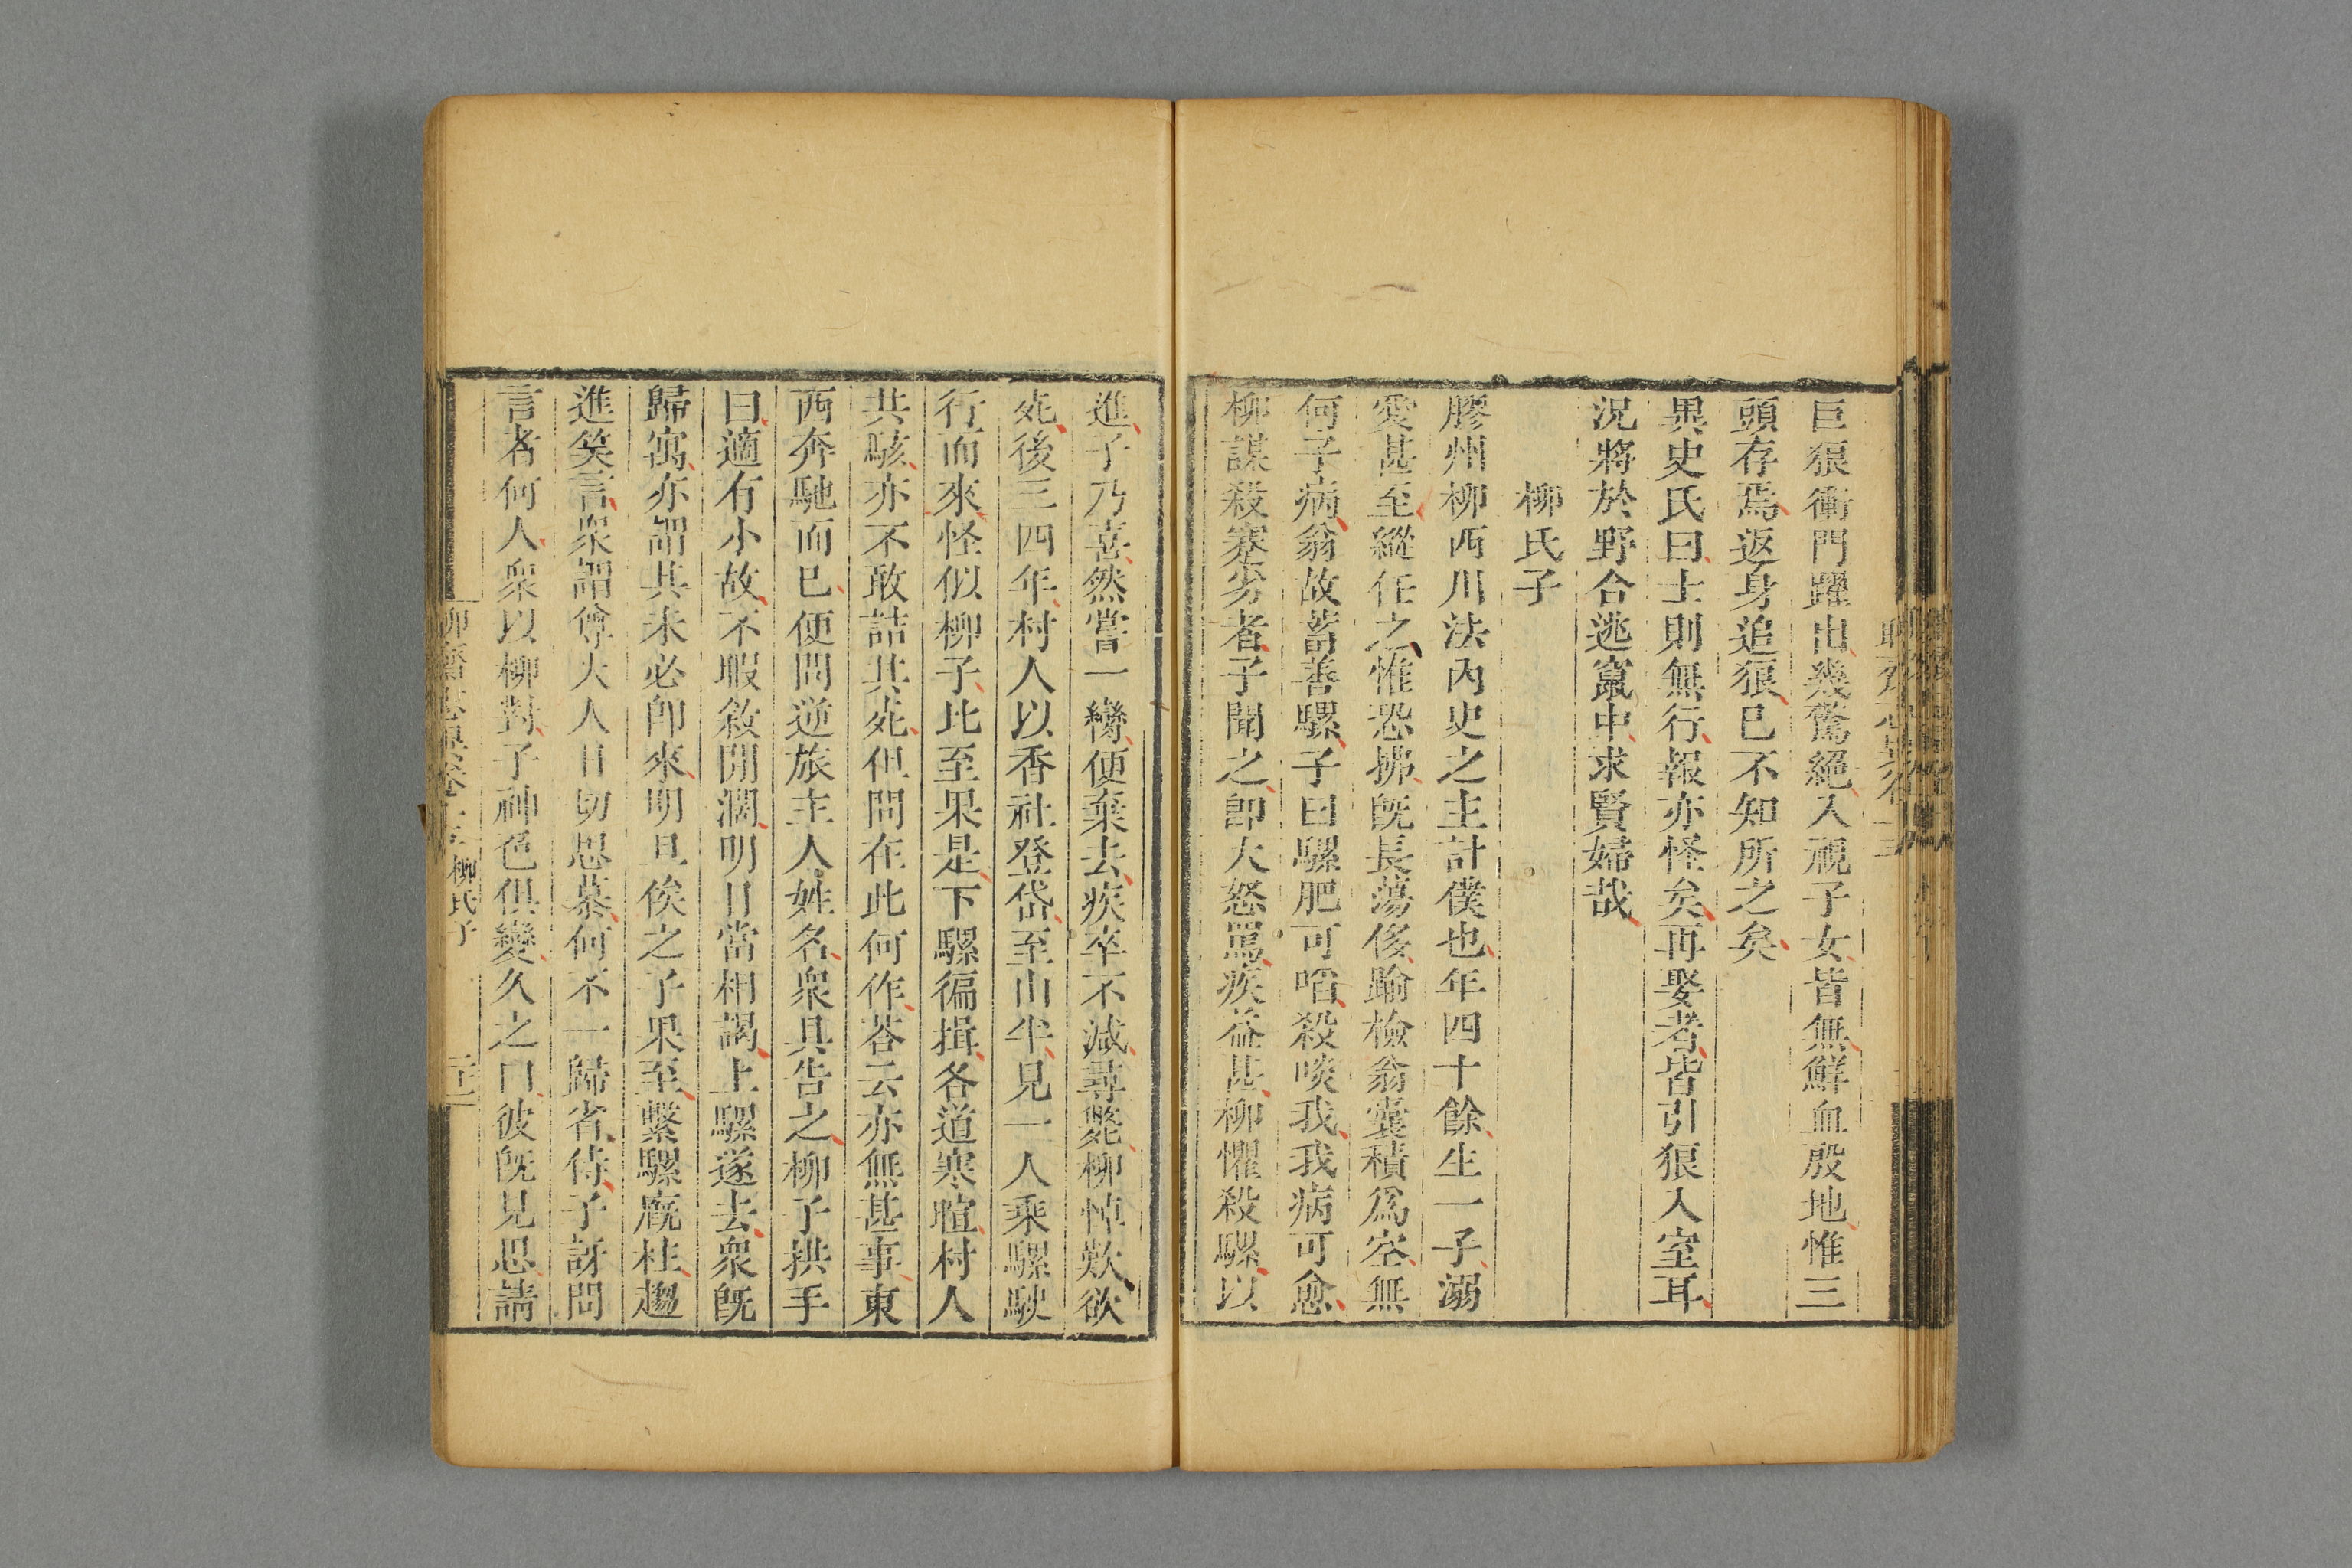 巨狼衝門躍出幾驚絕入視子女皆無鮮血殷地惟三
頭存焉返身追狼已不知所之矣
異史氏曰士則無行報亦怪矣再娶者皆引狼入室耳
況將於野合逃竄中求賢婦哉
柳氏子
膠州柳西川法內史之主計僕也年四十餘生一子溺
愛甚至縱任之惟恐拂旣長蕩侈踰檢翁囊積爲空無
何子病翁故蓄善騾子曰騾肥可啗殺啖我我病可愈
柳謀殺蹇劣者子聞之卽大怒罵疾益甚柳懼殺騾以
進子乃喜然嘗一臠便棄去疾卒不減尋斃柳悼歎欲
死後三四年村人以香社登岱至山半見一人乘騾駛
行而來怪似柳子比至果是下騾徧揖各道寒暄村人
共駭亦不敢詰其死但問在此何作荅云亦無甚事東
西奔馳而已便問逆旅主人姓名衆具告之柳子拱手
曰適有小故不暇敘閒濶明日當相謁上騾遂去衆旣
歸寓亦謂其未必卽來明旦俟之子果至繫騾廐柱趨
進笑言衆謂尊大人日切思慕何不一歸省侍子訝問
言者何人衆以柳對子神色俱變久之曰彼旣見思請
柳氏子